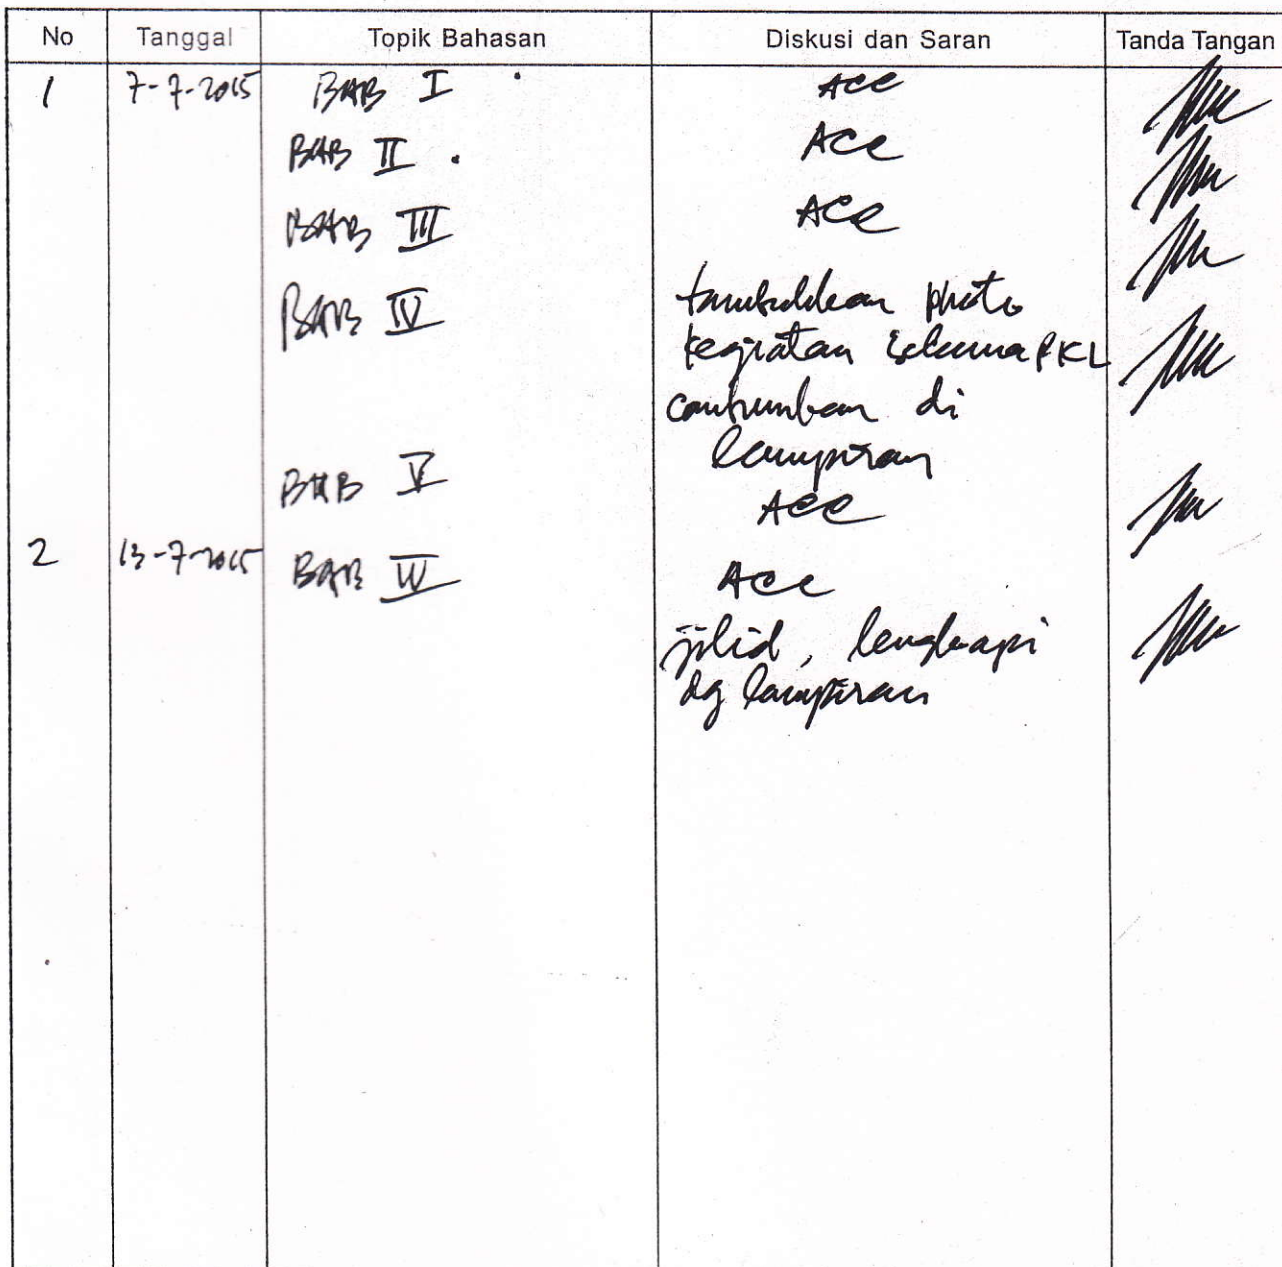 No Tanggal Topik Bahasan Diskusi dan Saran Tanda Tangan
1 7-7-2015 BAB I ACC
BAB II ACC
BAB III ACC
BAB IV tambahkan photo
kegiatan selama PKL
cantumkan di
lampiran
BAB V ACC
2 13-7-2015 BAB IV ACC
jilid, lengkapi
dg lampiran